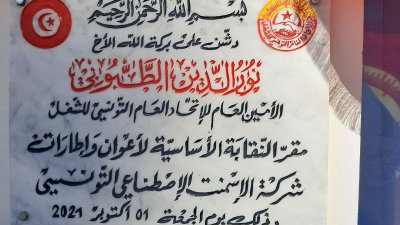 بسم الله الرحمن الرحيم
دشن على بركة الله الأخ
نور الدين الطبوبي
الأمين العام للإتحاد العام التونسي للشغل
مقر النقابة الأساسية لأعوان وإطارات
شركة الإسمنت الإصطناعي التونسي
وذلك يوم الجمعة 01 أكتوبر 2021